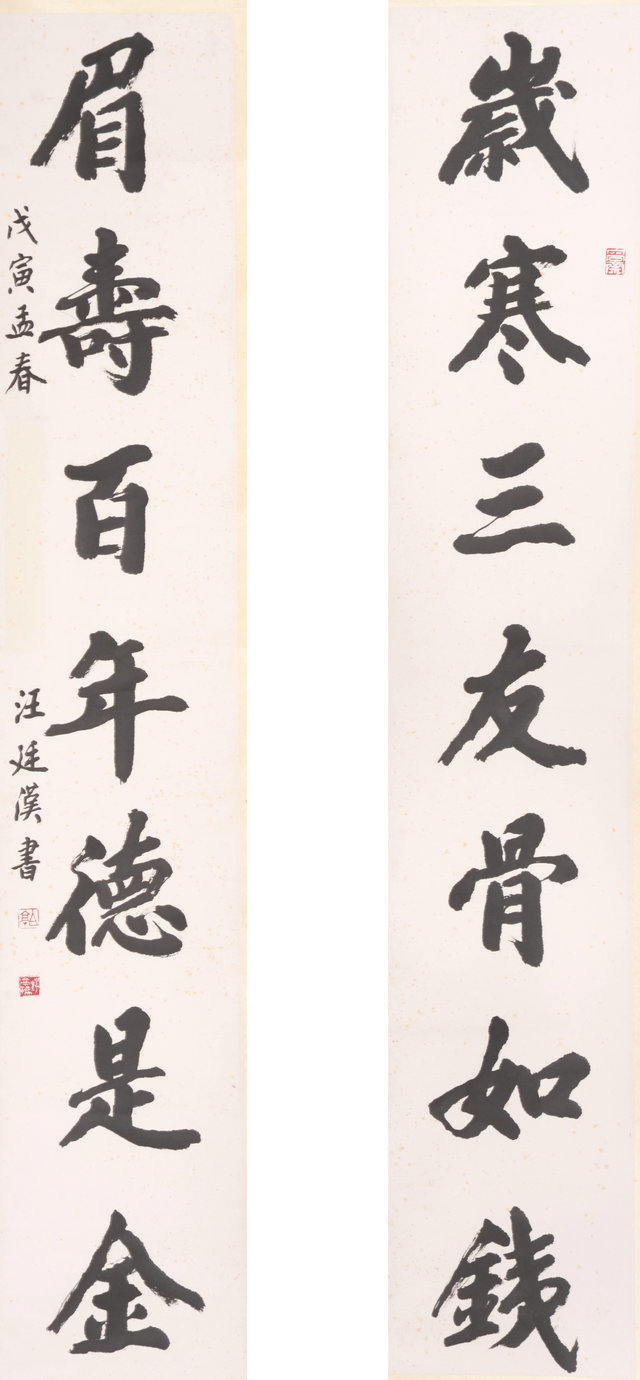 歲寒三友骨如銕
眉壽百年德是金
戊寅孟春
汪廷漢書